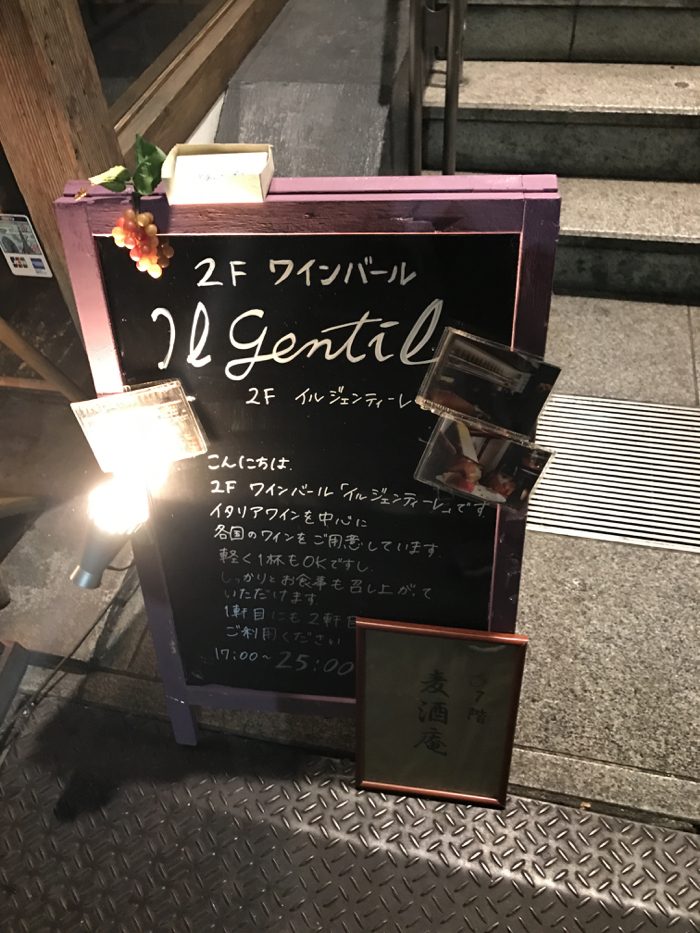 2F ワインバール
Il Gentil
2F イルジェンティーレ
こんにちは.
2F ワインバール「イルジェンティーレ」です
イタリアワインを中心に
各国のワインをご用意しています.
軽く1杯もOKですし.
しっかりとお食事も召し上がって
いただけます
1軒目にも2軒目
ご利用ください
17:00～25:00
階
麦酒庵
JCB